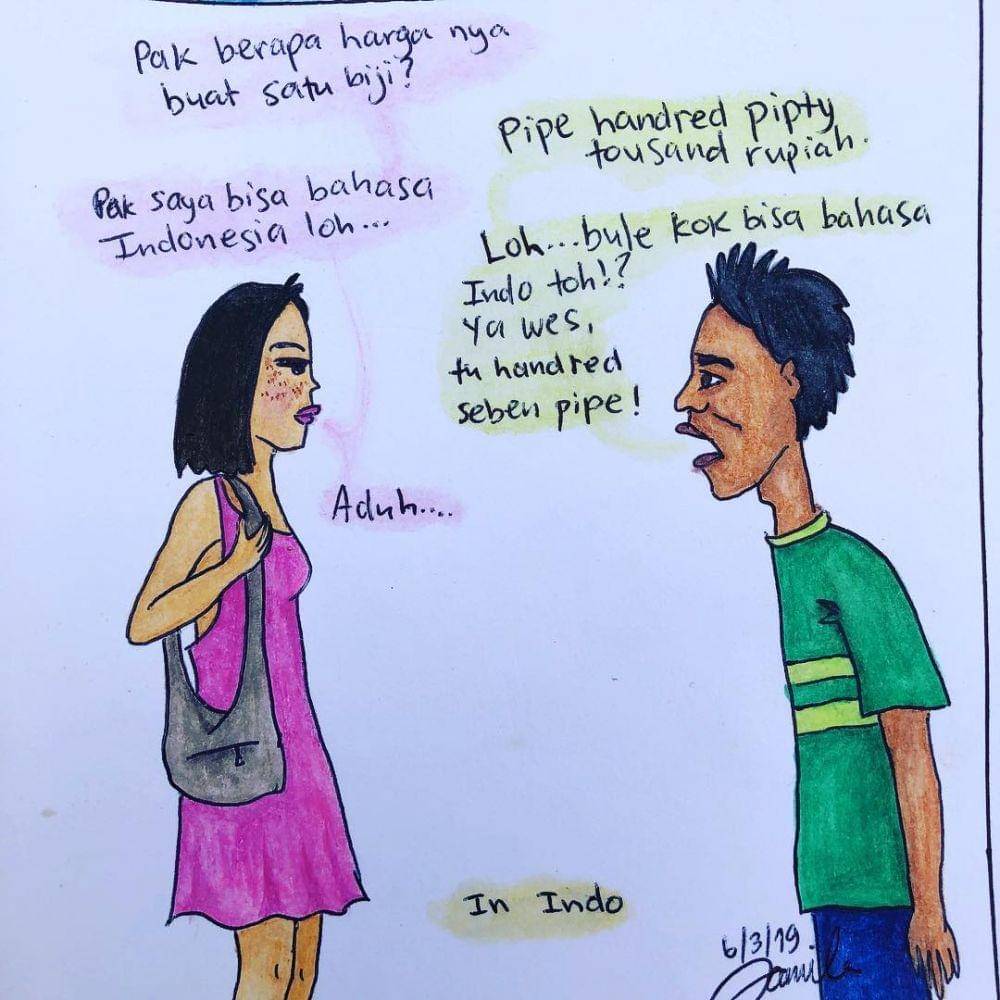 Pak berapa harga nya
buat satu biji?
Pipe handred pipty
tousand rupiah.
Pak saya bisa bahasa
Indonesia loh...
Loh...bule kok bisa bahasa
Indo toh!?
Ya wes,
tu handred
seben pipe!
Aduh....
In Indo
6/3/19